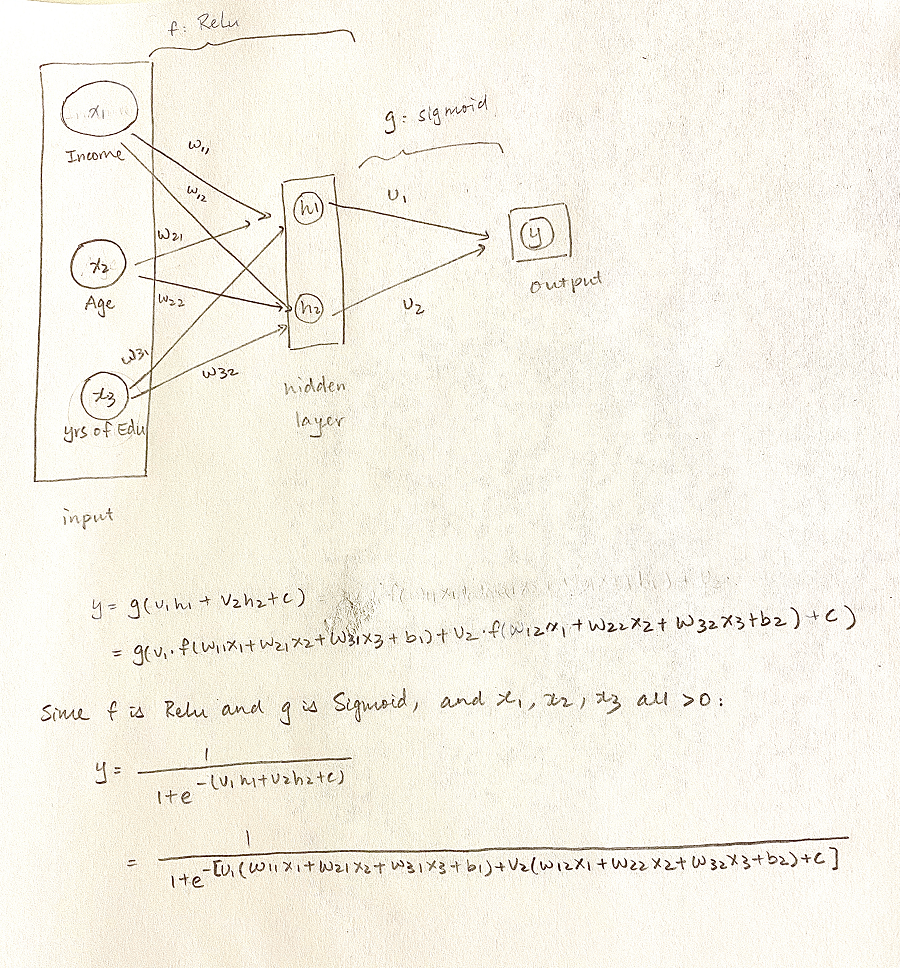 f: Relu
g: sigmoid
x1
Income
w11
w12
h1
v1
y
output
w21
x2
Age
w22
h2
v2
w31
x3
yrs of Edu
w32
hidden
layer
input
y = g(v1h1 + v2h2 + c)
= g(v1·f(w11x1+w21x2+w31x3+b1)+v2·f(w12x1+w22x2+w32x3+b2)+c)
Since f is Relu and g is Sigmoid, and x1, x2, x3 all >0:
y = 1
1+e^-(v1h1+v2h2+c)
= 1
1+e^-[v1(w11x1+w21x2+w31x3+b1)+v2(w12x1+w22x2+w32x3+b2)+c]